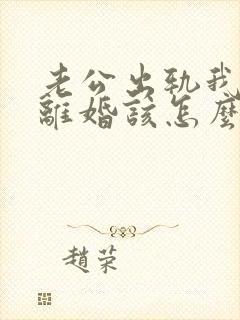 老公出軌我
離婚該怎麼
趙荣